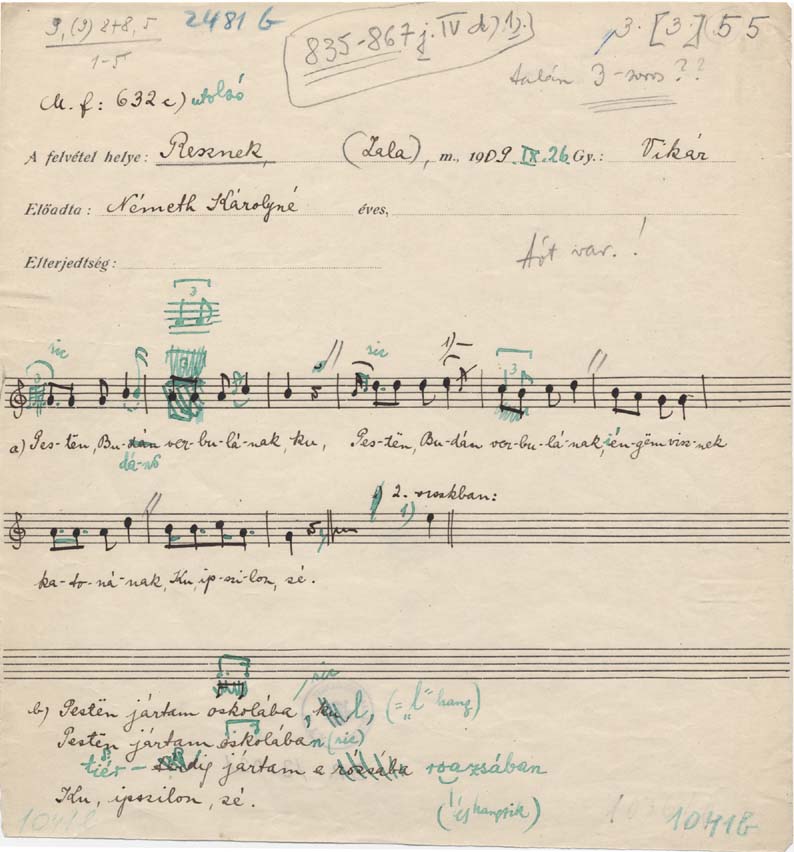 9, (9) 8+8, 5 2481 b 835-867 j. IV d) 1j. 3. [3.] 5 5
1-5
talán 3-soros??
M. f: 632 c) utolsó
A felvétel helye: Resznek, (Zala), m., 1909. IX. 26 Gy.: Vikár
Előadta: Németh Károlyné éves,
Elterjedtség:
Áót var.!
3
sic sic 1)
3 3
a) Pes-tën, Bu-dán ver-bu-lá-nak, ku, Pes-tën, Bu-dán ver-bu-lá-nak, ién-gëm visz-nek
dá-nó
1) 2. vrszkban:
ka-to-ná-nak, Ku, ip-szi-lon, zé.
sic
b) Pestën jártam oskolába, ku l, (= "l" hang)
Pestën jártam oskolában (sic)
tiér- jártam a rózsába roazsában
Ku, ipszilon, zé.
1041b 1041b